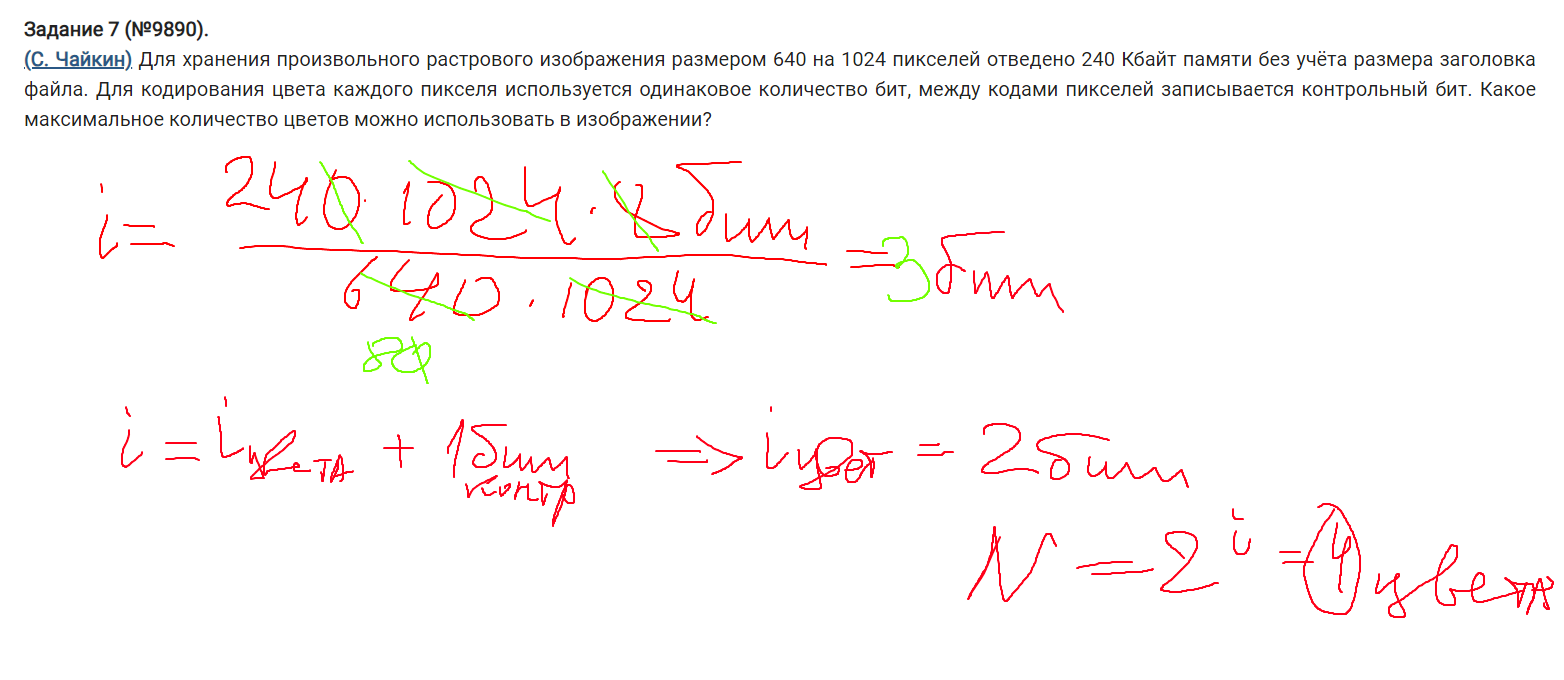 Задание 7 (№9890).
(С. Чайкин) Для хранения произвольного растрового изображения размером 640 на 1024 пикселей отведено 240 Кбайт памяти без учёта размера заголовка
файла. Для кодирования цвета каждого пикселя используется одинаковое количество бит, между кодами пикселей записывается контрольный бит. Какое
максимальное количество цветов можно использовать в изображении?
240 · 1024 · 8 бит
i = = 3 бит
640 · 1024
80
i = i цвета + 1 бит => i цвет = 2 бит
контр
N = 2^i = 4 цвета